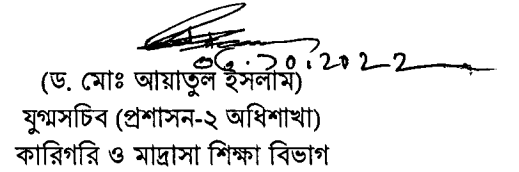 ০৬.১০.২০২২
(ড. মোঃ আয়াতুল ইসলাম)
যুগ্মসচিব (প্রশাসন-২ অধিশাখা)
কারিগরি ও মাদ্রাসা শিক্ষা বিভাগ